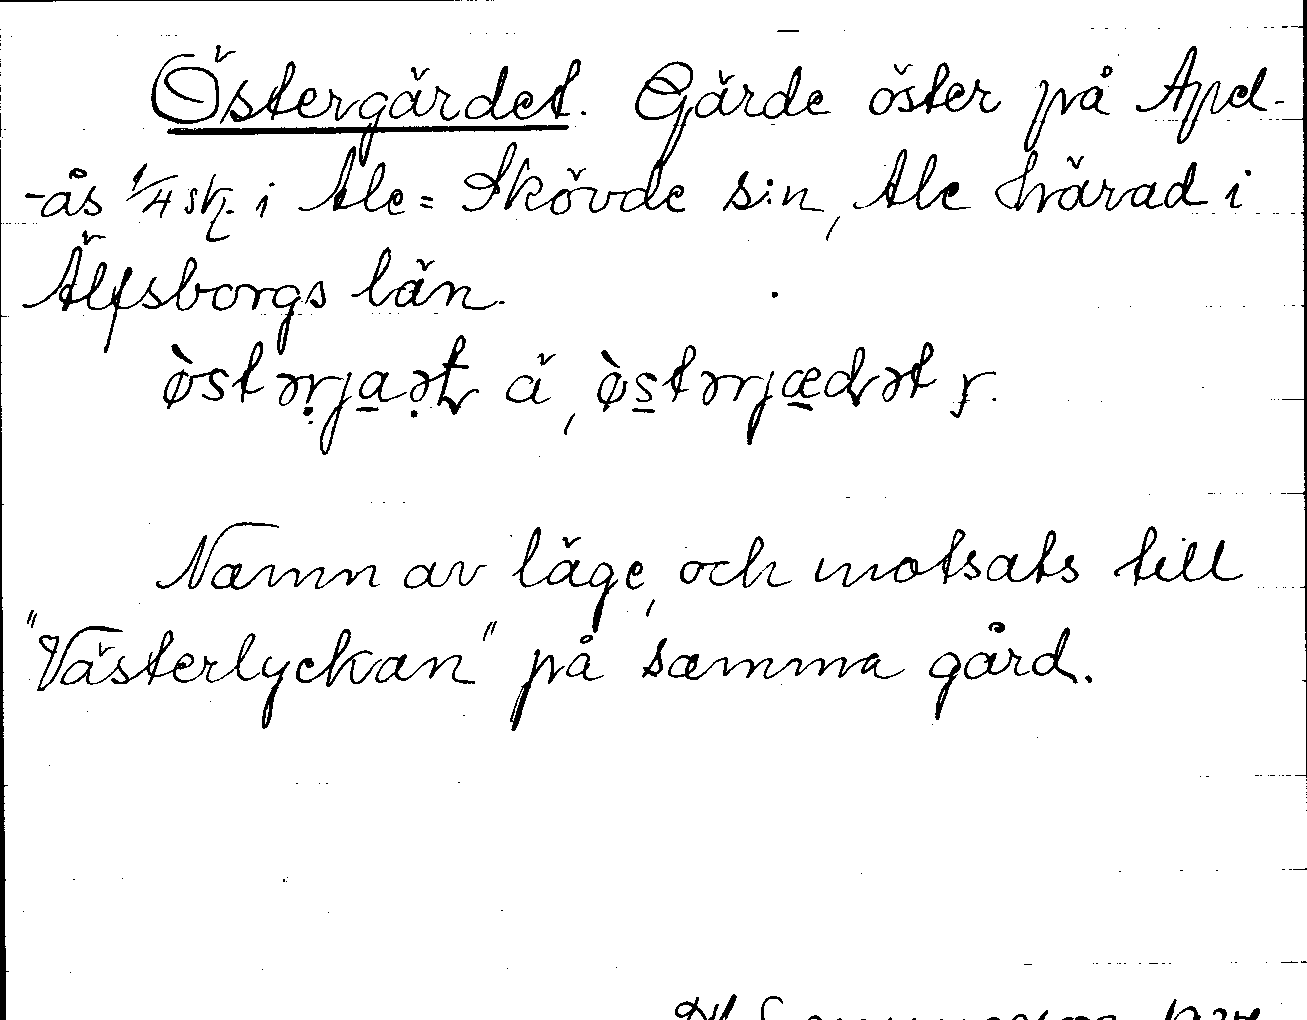 Östergärdet. Gärde öster på Apel-
-ås 1/4 sk. i Ale=Skövde s:n, Ale härad i
Älfsborgs län.
ä,
Namn av läge, och motsats till
"Västerlyckan" på samma gård.